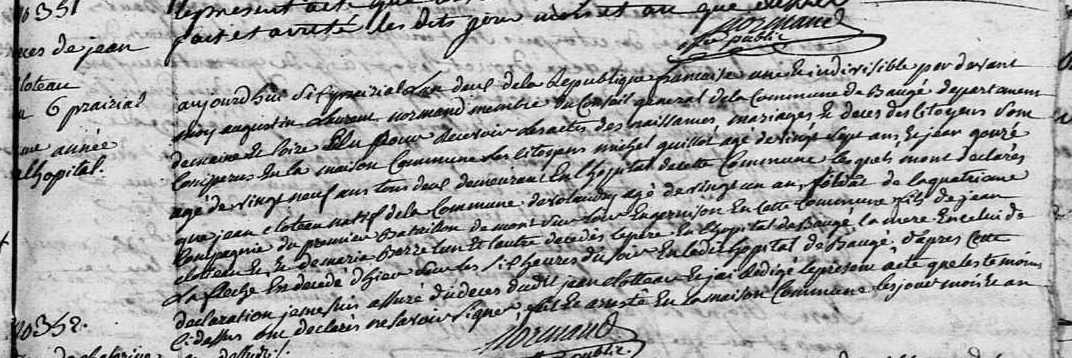 1035
le present acte que
ces de jean
fait et arreté les dits jour mois et an que dessus
Normand
off public
cloteau
6 prairial
année
lhopital.
aujourdhui six prairial Lan deux de la Republique francaise une et indivisible par devant
moy augustin Laurent normand membre du Conseil general de la Commune de Baugé departement
demaine et Loire Elu pour recevoir les actes des naissances mariages et deces des Citoyens Sont
Comparus En la maison Commune les Citoyens michel quillot agé de vingt sept ans, et jean
agé de vingt neuf ans tous deux demeurant En lhopital de cette Commune lesquels mont declarés
que jean cloteau natif de la Commune de agé de vingt un an, soldat de la quatrieme
Compagnie du premier Bataillon de En garnison En cette Commune fils de jean
cloteau et de marie lun et lautre decedés le pere En lhopital de Baugé, la mere En celui de
La fleche En decedé dhier Sur les six heures du soir En ledit hopital de Baugé, d'apres Cette
declaration je me suis assuré du deces dudit jean cloteau et jai redigé le present acte que les temoins
Cidessus ont declarés ne savoir signer, fait et arreté En la maison Commune les jour mois et an
Normand
1035 2.
public.